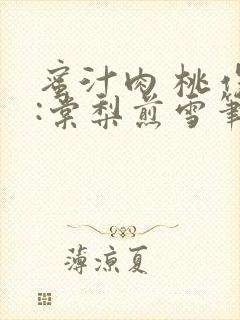 蜜汁肉桃作
:棠梨煎雪笔
薄凉夏